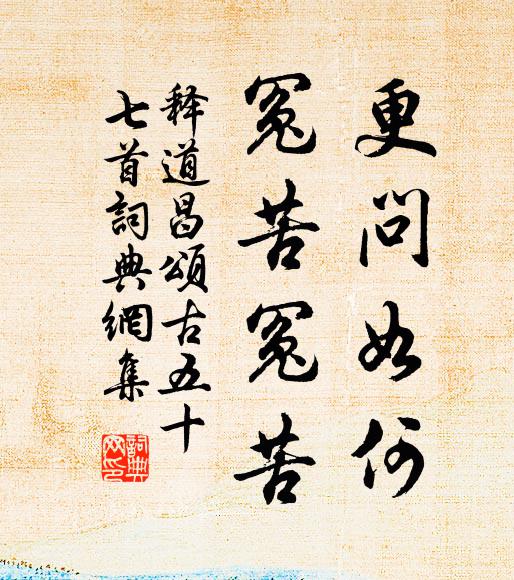 更问如何
冤苦冤苦
释道昌颂古五十
七首詞典網集
詞典網印